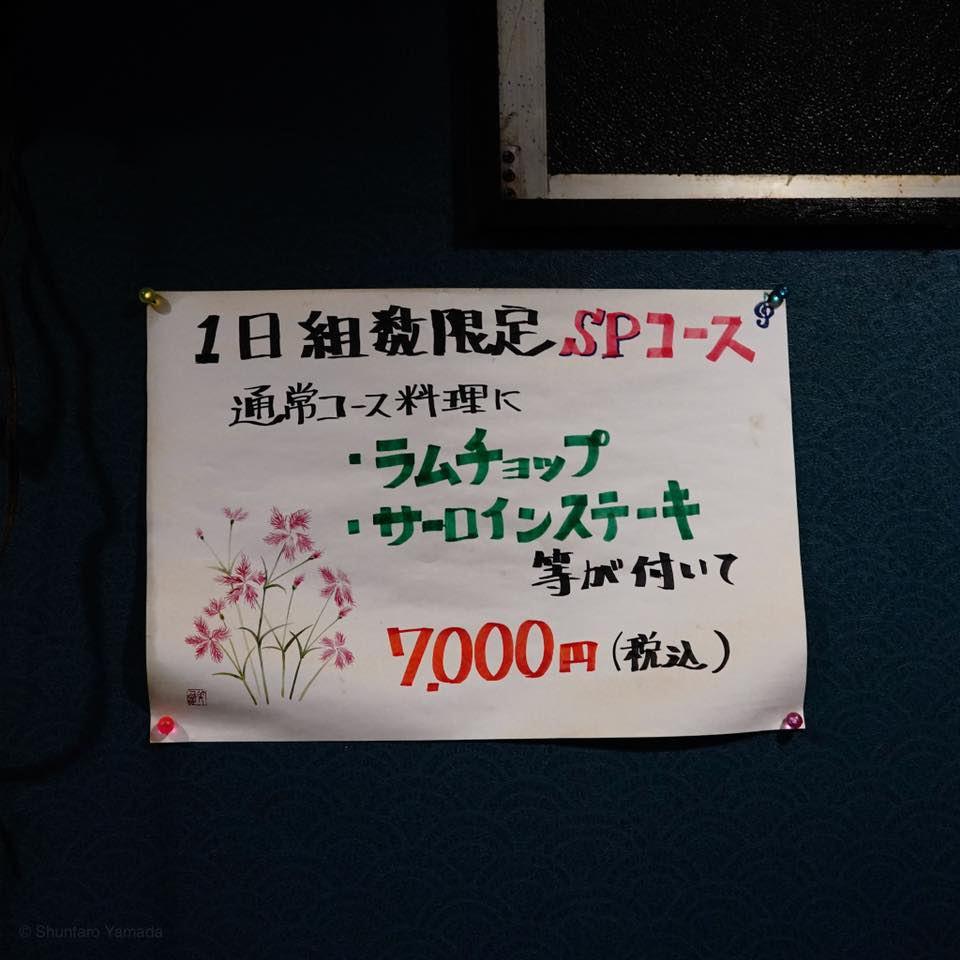 1日組数限定SPコース
通常コース料理に
・ラムチョップ
・サーロインステーキ
等が付いて
7.000円(税込)
© Shuntaro Yamada